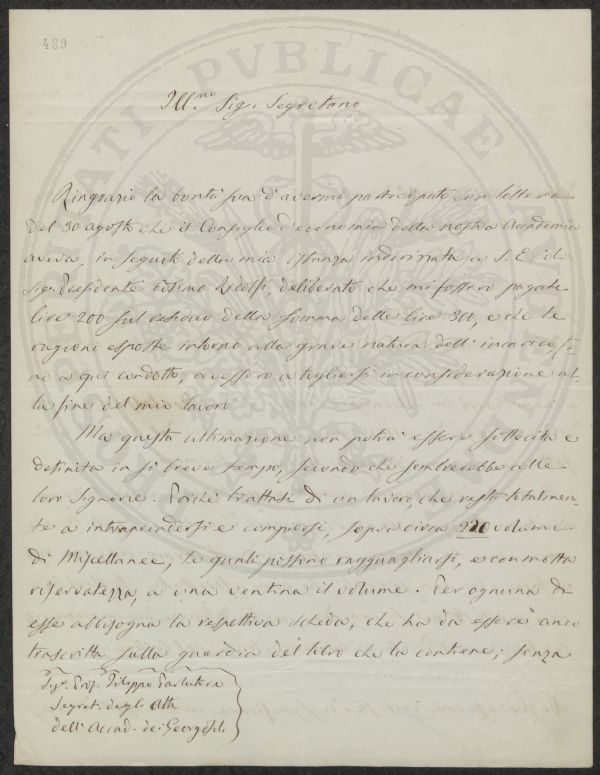 489
Ill.mo Sig. Segretario
Ringrazio la bontà sua d'avermi partecipato con lettera
del 30 agosto che il Consiglio d'economia della nostra Accademia
aveva, in seguito della mia istanza indirizzata a S. E. il
Sig. Presidente Cosimo Ridolfi, deliberato che mi fossero pagate
lire 200 sul residuo della somma delle lire 300, e che le
ragioni esposte intorno alla grave natura dell'incarico fi-
no a qui condotto, avessero a togliersi in considerazione al-
la fine del mio lavoro
Ma questa ultimazione non potrà essere sollecita e
definita in sì breve tempo, secondo che sembrerebbe alle
loro Signorie. Poichè trattasi di un lavoro, che resta totalmen-
te a intraprendersi e compiersi, sopra circa 220 volumi
di Miscellanee, le quali possono ragguagliarsi, e con molta
riservatezza, a una ventina il volume. Per ognuna di
esse abbisogna la respettiva scheda, che ha da essere anco
trascritta sulla guardia del libro che la contiene; senza
Sig. Prof. Filippo Parlatore
Segret. degli Atti
dell'Accad. dei Georgofili
PVBLICAE